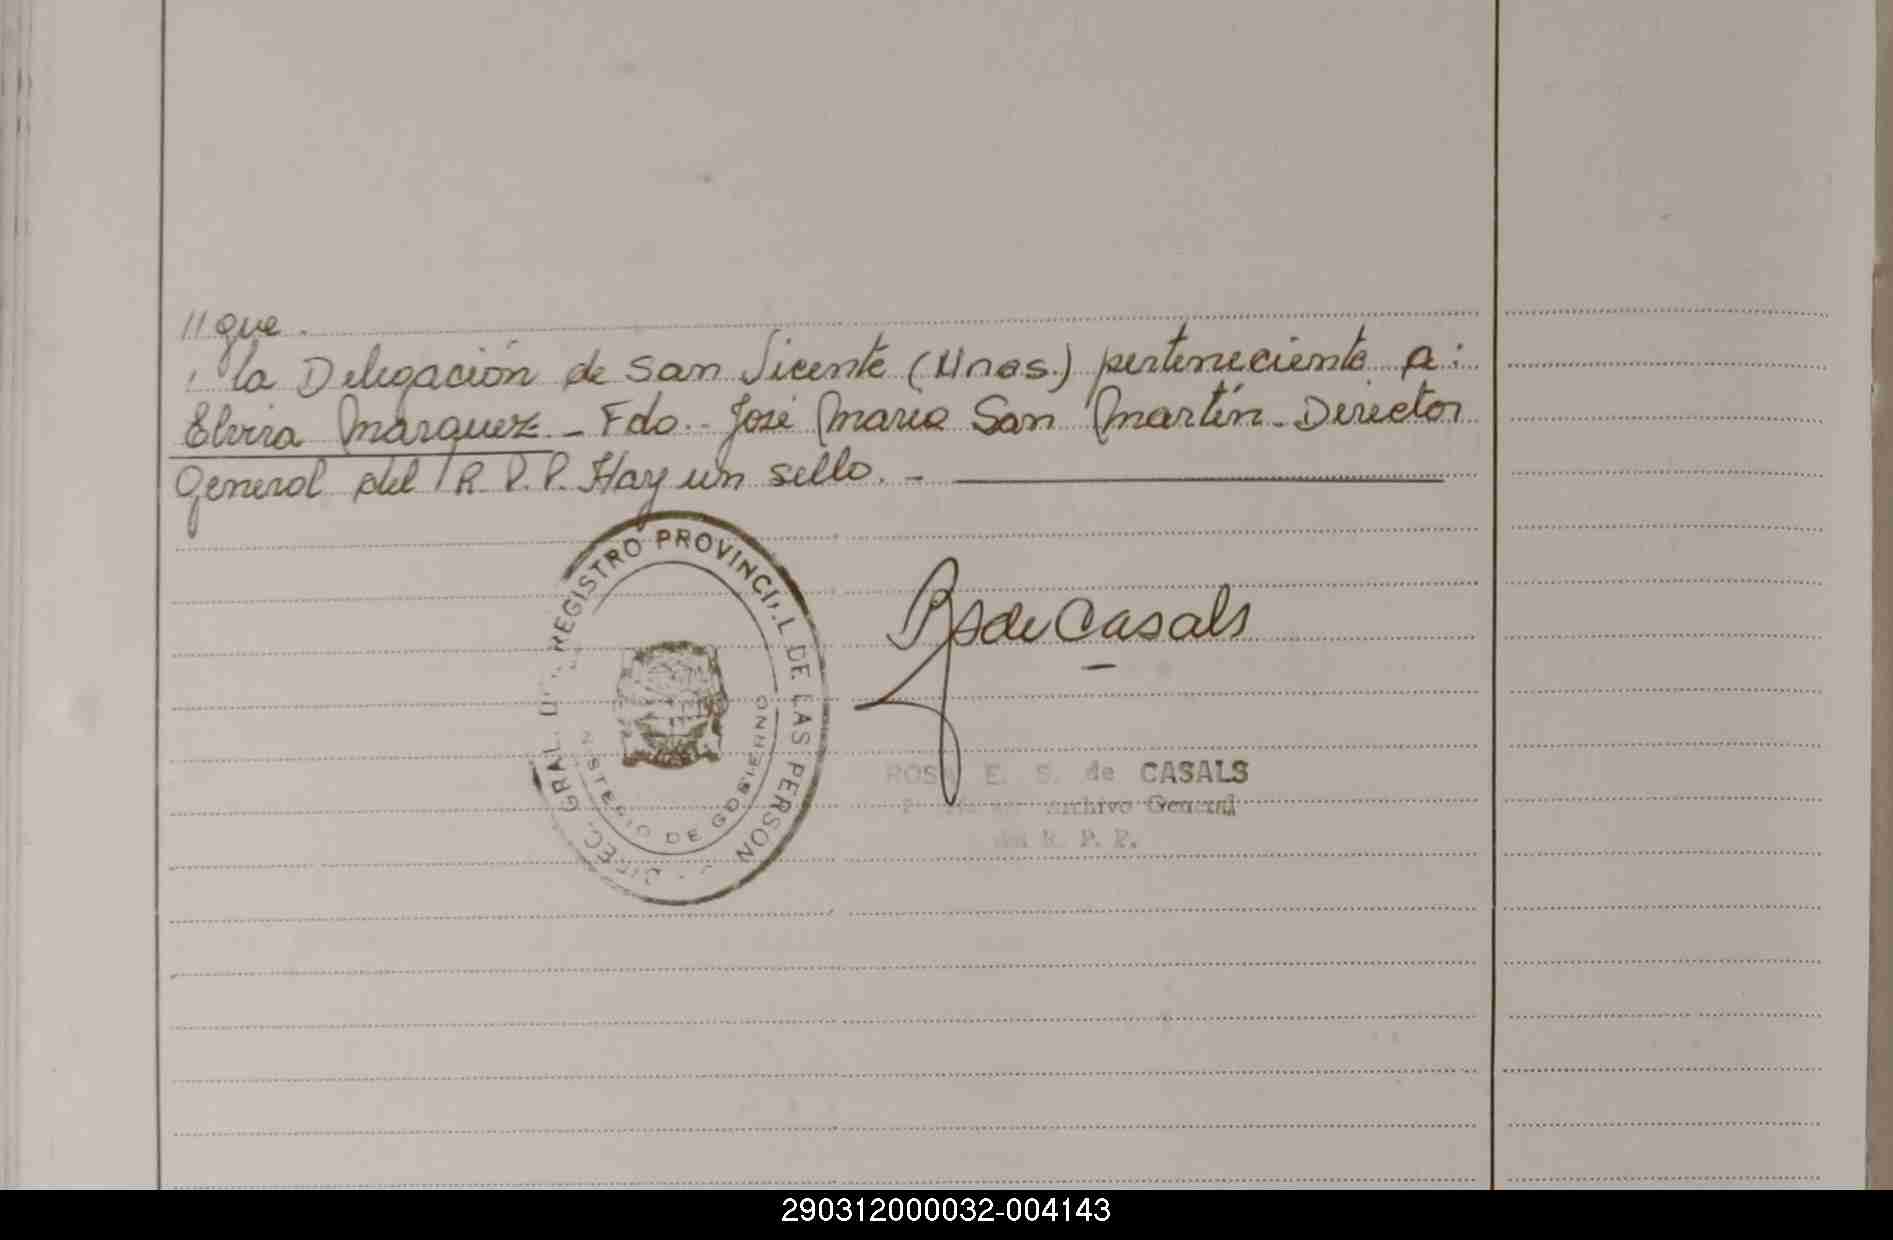 // que.
la Delegación de San Vicente (Mnes.) perteneciente a:
Elvira Marquez - Fdo. - José Maria San Martín - Director
General del R.P.P. Hay un sello. -
REGISTRO PROVINCIAL DE LAS PERSON
GRAL.
MINISTERIO DE GOBIERNO
RS de Casals
ROSA E. S. de CASALS
Archivo General
del R. P. P.
290312000032-004143